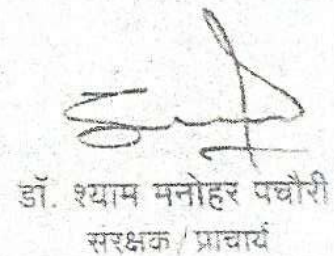 डॉ. श्याम मनोहर पचौरी
संरक्षक / प्राचार्य